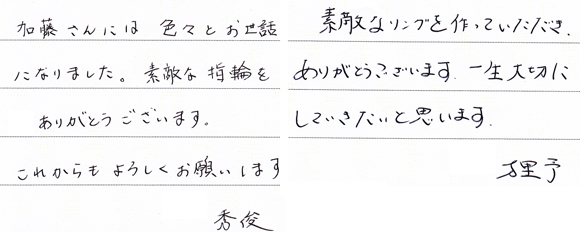 加藤さんには 色々とお世話
になりました。素敵な指輪を
ありがとうございます。
これからもよろしくお願いします
秀俊
素敵なリングを作っていただき、
ありがとうございます。一生大切に
していきたいと思います。